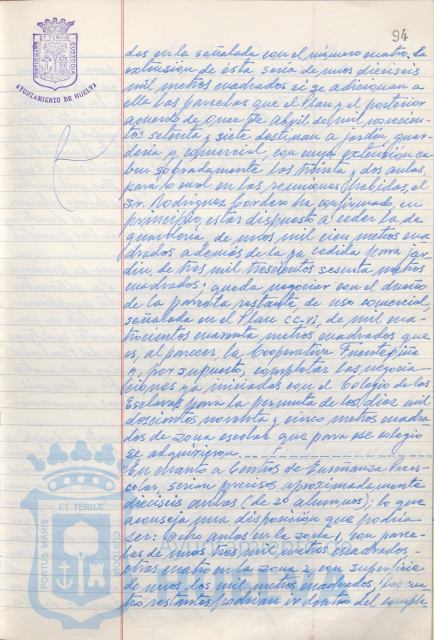 94
PORTUS MARIS ET TERRÆ CUSTODIA
AYUNTAMIENTO DE HUELVA
dos en la señalada con el número cuatro. La
extensión de ésta sería de unos dieciseis
mil metros cuadrados si se adicionan a
ella las parcelas que el Plan y el posterior
acuerdo de once de abril de mil novecien-
tos setenta y siete destinan a jardín, guar-
dería y comercial, con cuya extensión ca-
ben sobradamente las treinta y dos aulas,
para lo cual en las reuniones habidas, el
Sr. Rodríguez Cordero ha confirmado, en
principio, estar dispuesto a ceder la de
guardería, de unos mil cien metros cua-
drados además de la ya cedida para jar-
dín, de tres mil trescientos sesenta metros
cuadrados; queda negociar con el dueño
de la parcela restante de uso comercial,
señalada en el Plan CC-VI, de mil cua-
trocientos cuarenta metros cuadrados que
es, al parecer, la Cooperativa Fuentepiña
y, por supuesto, completar las negocia-
ciones ya iniciadas con el Colegio de las
Esclavas para la permuta de los diez mil
doscientos noventa y cinco metros cuadra-
dos de zona escolar que para ese colegio
se adquirieron.
En cuanto a Centros de Enseñanza Prees-
colar, serían precisos aproximadamente
dieciseis aulas (de 20 alumnos); lo que
aconseja una disposición que podría
ser: Ocho aulas en la zona 1, con parce-
las de unos tres mil metros cuadrados-
otras cuatro en la zona 2, con superficie
de unos dos mil metros cuadrados, las cua-
tro restantes podrían ir dentro del comple-
PORTUS MARIS ET TERRÆ CUSTODIA